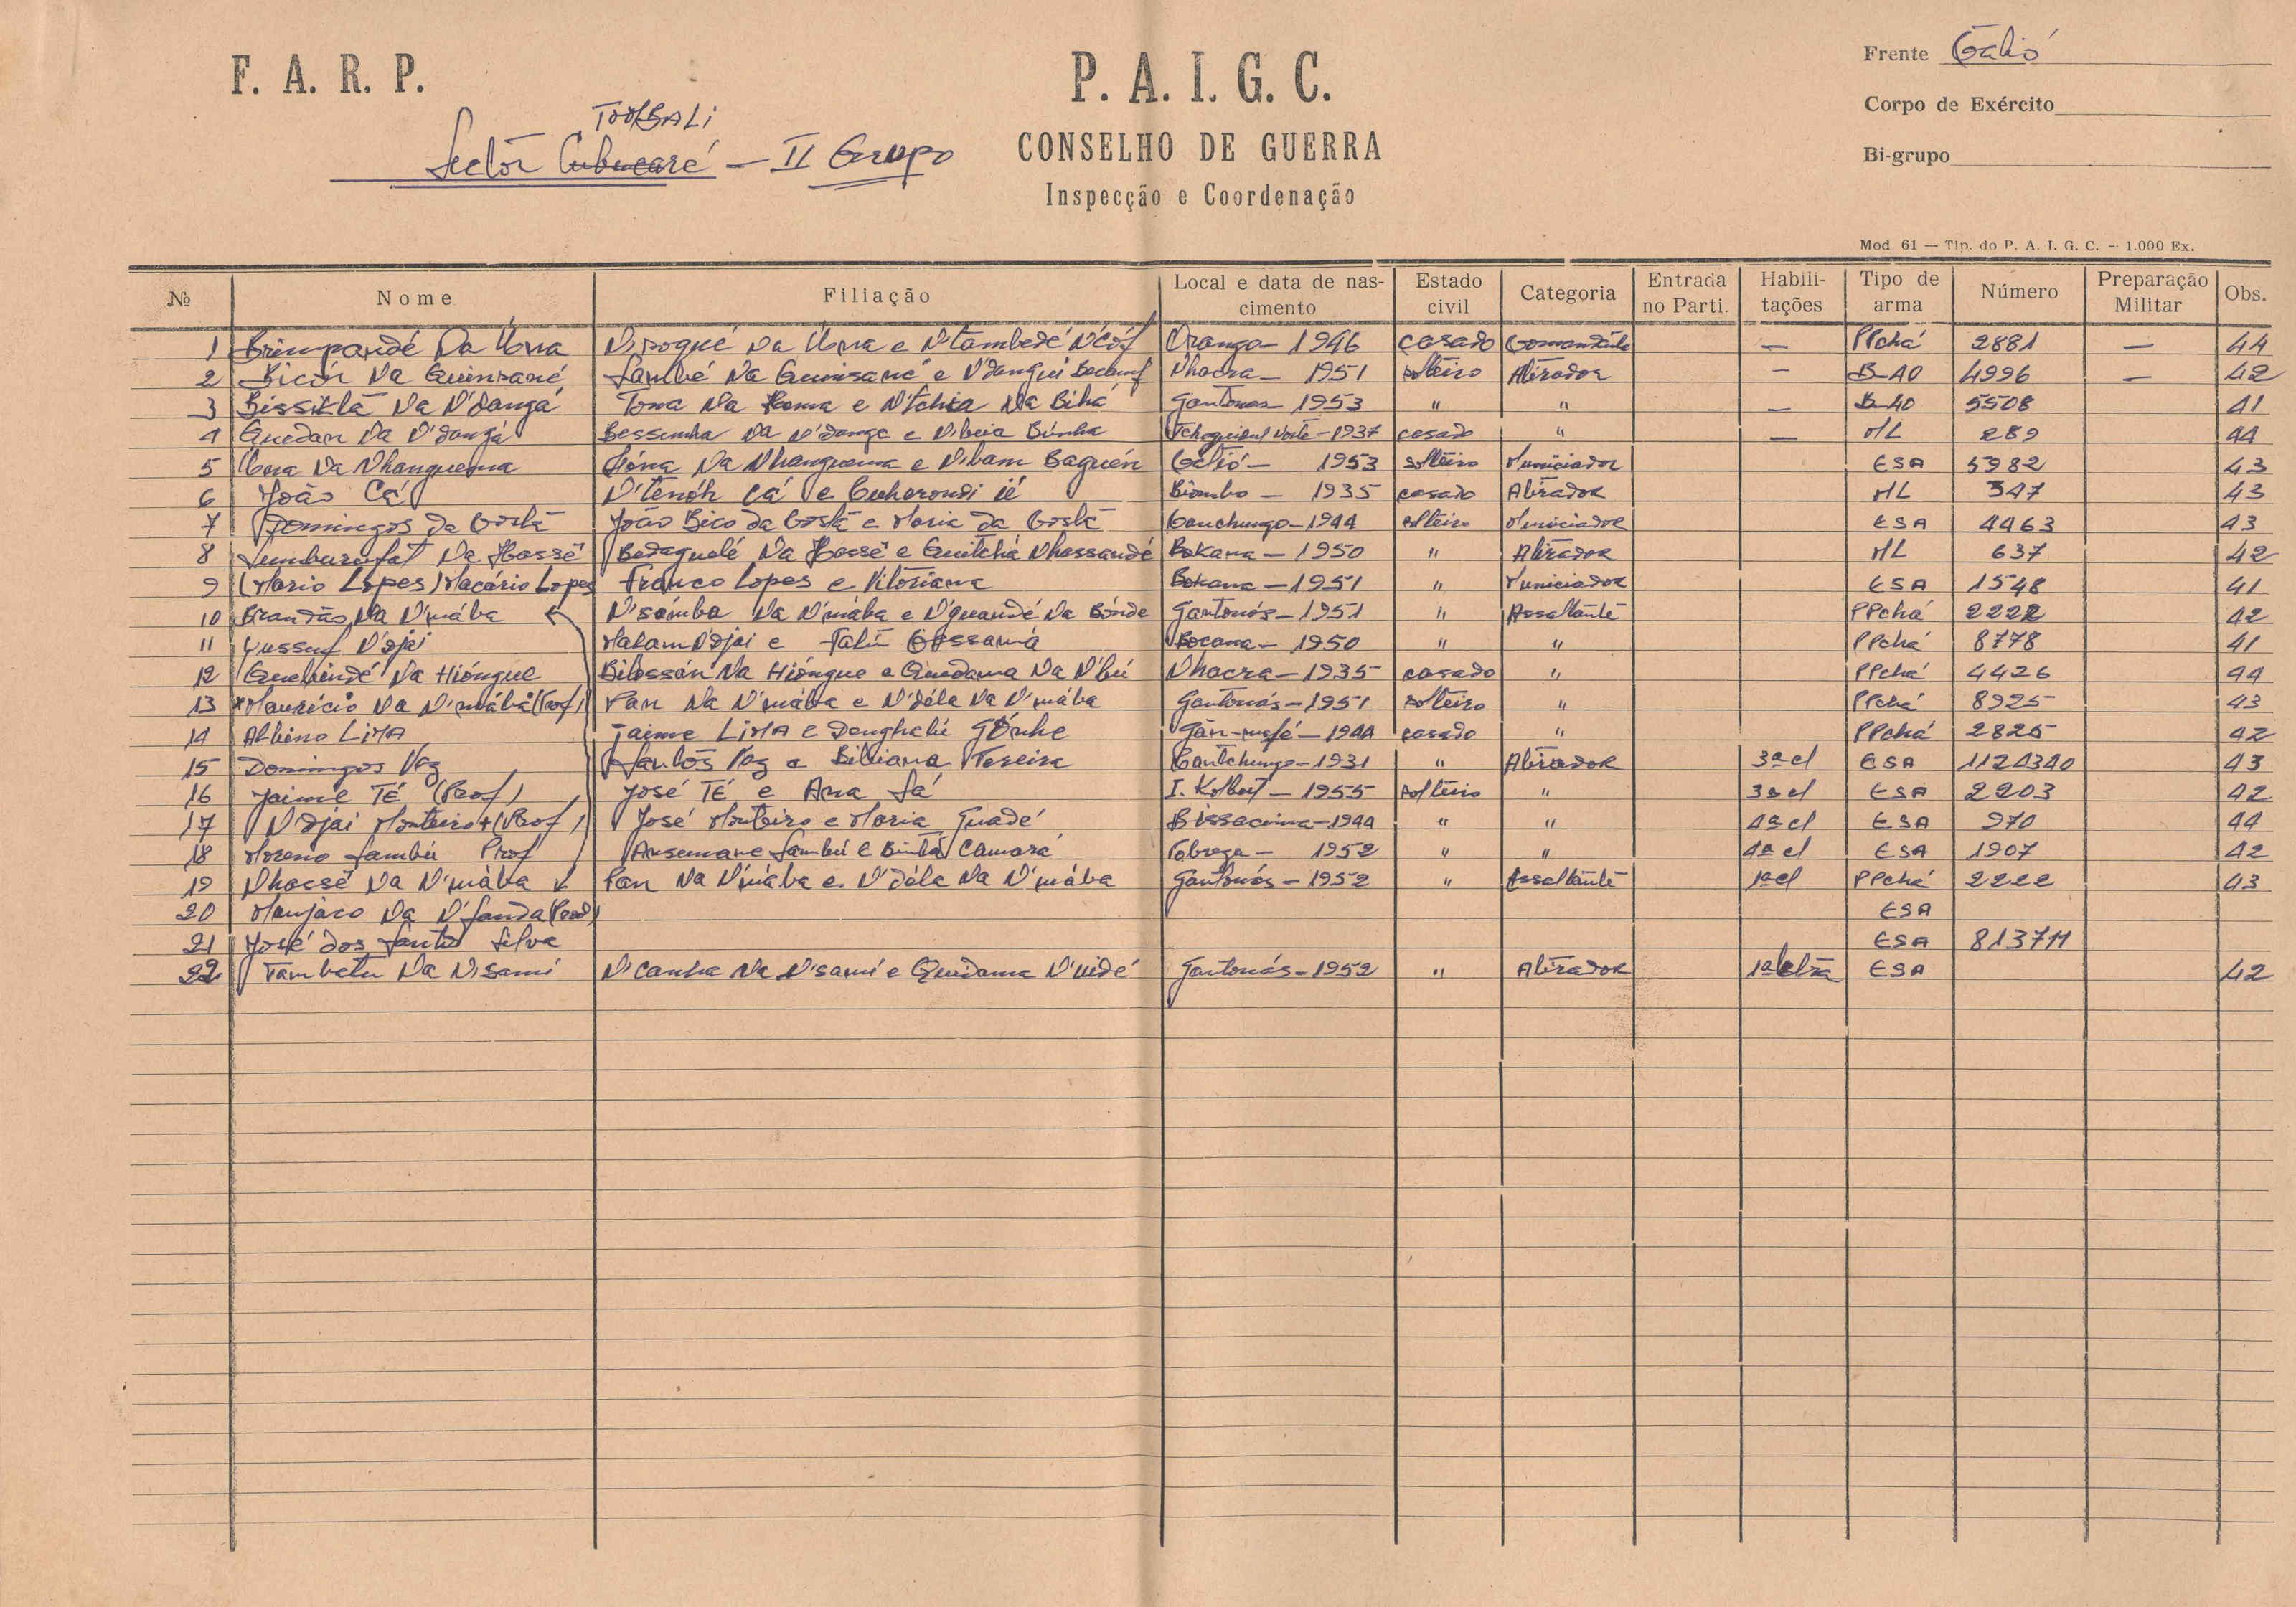 F. A. R. P.
P. A. I. G. C.
CONSELHO DE GUERRA
Inspecção e Coordenação
Frente Catió
Corpo de Exército
Bi-grupo
TOMBALI
Sector Cubucaré — II Grupo
Mod 61 — Tip. do P. A. I. G. C. — 1.000 Ex.
№ Nome Filiação Local e data de nascimento Estado civil Categoria Entrada no Parti. Habilitações Tipo de arma Número Preparação Militar Obs.
1 Brimpandé Na Una Na Una e N'tambedé Orango — 1946 casado Comandante — PPchá 2881 — 44
2 Bicór Na Quinsané Sambé Na Quinsané e N'dangui Nhacra — 1951 solteiro Atirador — B-40 4996 — 42
3 Bissiklã Na N'dangá Tona Na Homa e N'tchia Na Bihá Gantonas — 1953 " " — B-40 5508 41
4 Quedan Na N'dangá Bessunha Na N'danga e N'beia Búnha Norte — 1937 casado " — ML 289 44
5 Na Nhanguema Na Nhanguema e N'bam Baguén Catió — 1953 solteiro Municiador ESA 5982 43
6 João Cá N'tenóh Cá e ié Biombo — 1935 casado Atirador ML 347 43
7 Domingos da Costa João Bico da Costa e Maria da Costa Canchungo — 1944 solteiro Municiador ESA 4463 43
8 Na Hassê Bedaguelé Na Hassê e Quitchá Nhassandé Bokana — 1950 " Atirador ML 637 42
9 (Mario Lopes) Macário Lopes Franco Lopes e Vitoriana Bokana — 1951 " Municiador ESA 1548 41
10 Brandão Na N'mába N'sámba Na N'mába e N'quandé Na Bónde Gantonás — 1951 " Assaltante PPchá 2222 42
11 Yussuf N'djai Malam N'djai e Fatú Bocana — 1950 " " PPchá 8778 41
12 Quebindé Na Hióngue Bilossán Na Hióngue e Quedama Na N'bú Nhacra — 1935 casado " PPchá 4426 44
13 Maurício Na N'mába (Prof) Pan Na N'mába e N'déla Na N'mába Gantonás — 1951 solteiro " PPchá 8925 43
14 Albino LIMA Jaime LIMA e Denghalú Gónhe Gän-mafé — 1944 casado " PPchá 2825 42
15 Domingos Vaz Santos Vaz e Bibiana Pereira Cantchungo — 1931 " Atirador 3ª cl ESA 1121340 43
16 Jaime TÉ (Prof) José TÉ e Ana Sá I. Kolbert — 1955 solteiro " 3ª cl ESA 2203 42
17 N'djai Monteiro + (Prof) José Monteiro e Maria Guadé Bissacima — 1944 " " 4ª cl ESA 970 44
18 Moreno Sambú Prof Ansumane Sambú e Bintá Camará — 1952 " " 4ª cl ESA 1907 42
19 Nhassê Na N'mába Pan Na N'mába e N'déla Na N'mába Gantonás — 1952 " Assaltante 1ª cl PPchá 2222 43
20 Manjaco Na N'fanda (Prof) ESA
21 José dos Santos Silva ESA 813711
22 Tambatu Na N'sami N'canha Na N'sami e Quidama N'uidé Gantonás — 1952 " Atirador 1ª ESA 42